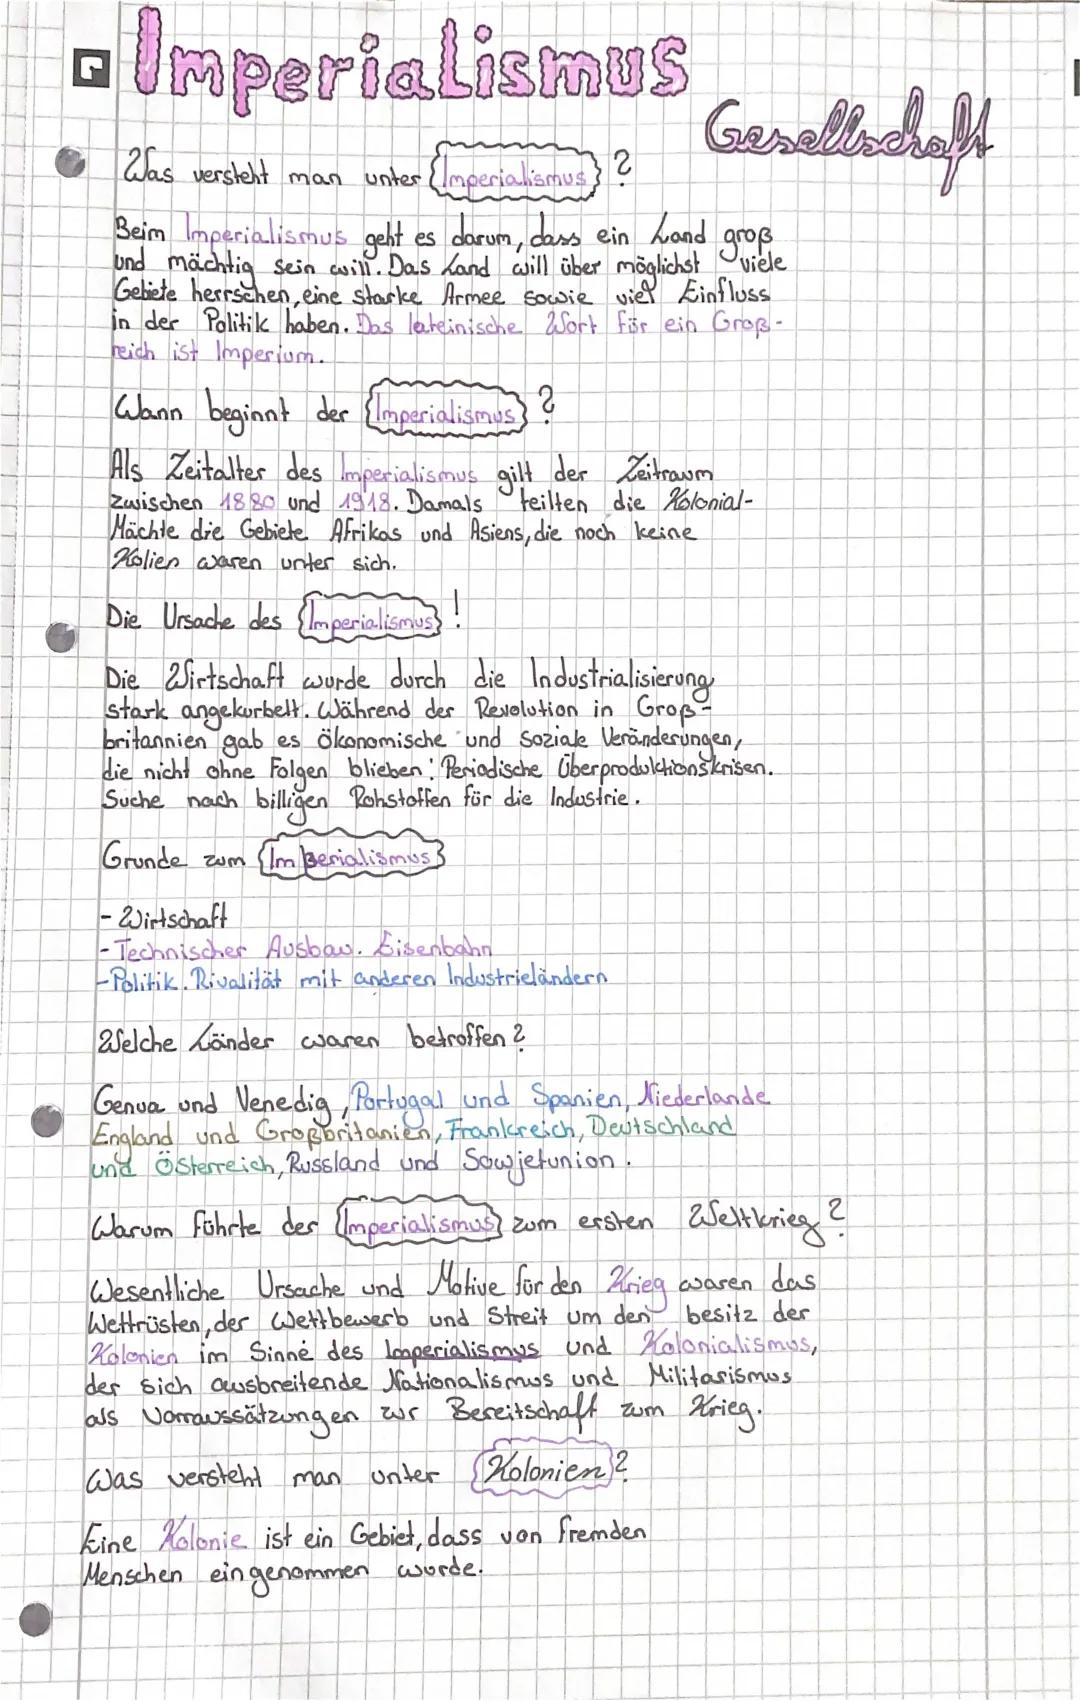 Imperialismus
Gesellschaft
Was versteht man unter Imperialismus?
Beim Imperialismus geht es darum, dass ein Land groß
und mächtig sein will. Das Land will über möglichst viele
Gebiete herrschen, eine starke Armee sowie viel Einfluss
in der Politik haben. Das lateinische Wort für ein Groß-
reich ist Imperium.
Wann beginnt der Imperialismus?
Als Zeitalter des Imperialismus gilt der Zeitraum
zwischen 1880 und 1918. Damals teilten die Kolonial-
Mächte die Gebiete Afrikas und Asiens, die noch keine
Kolien waren unter sich.
Die Ursache des Imperialismus!
Die Wirtschaft wurde durch die Industrialisierung
stark angekurbelt. Während der Revolution in Groß-
britannien gab es ökonomische und soziale Veränderungen,
die nicht ohne Folgen blieben: Periodische Überproduktionskrisen.
Suche nach billigen Rohstoffen für die Industrie.
Grunde zum Imperialismus
- Wirtschaft
- Technischer Ausbau. Eisenbahn
- Politik. Rivalität mit anderen Industrieländern
Welche Länder waren betroffen?
Genua und Venedig, Portugal und Spanien, Niederlande
England und Großbritanien, Frankreich, Deutschland
und Österreich, Russland und Sowjetunion.
Warum führte der Imperialismus zum ersten Weltkrieg?
Wesentliche Ursache und Motive für den Krieg waren das
Wettrüsten, der Wettbewerb und Streit um den besitz der
Kolonien im Sinne des Imperialismus und Kolonialismus,
der sich ausbreitende Nationalismus und Militarismus
als Vorraussätzungen zur Bereitschaft zum Krieg.
Was versteht man unter Kolonien?
Eine Kolonie ist ein Gebiet, dass von fremden
Menschen eingenommen wurde.